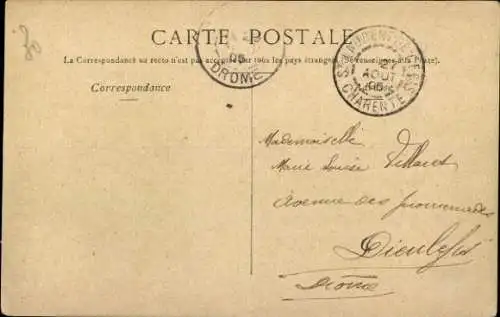 CARTE POSTALE
La Correspondance au recto n'est pas acceptée par tous les pays étrangers (Se renseigner à la Poste).
Correspondance
05
DROME
ST LAURENT DE
AOUT
05
CHARENTE
30
Mademoiselle
Marie Louise Villard
Avenue des promenades
Dieulefit
Drôme